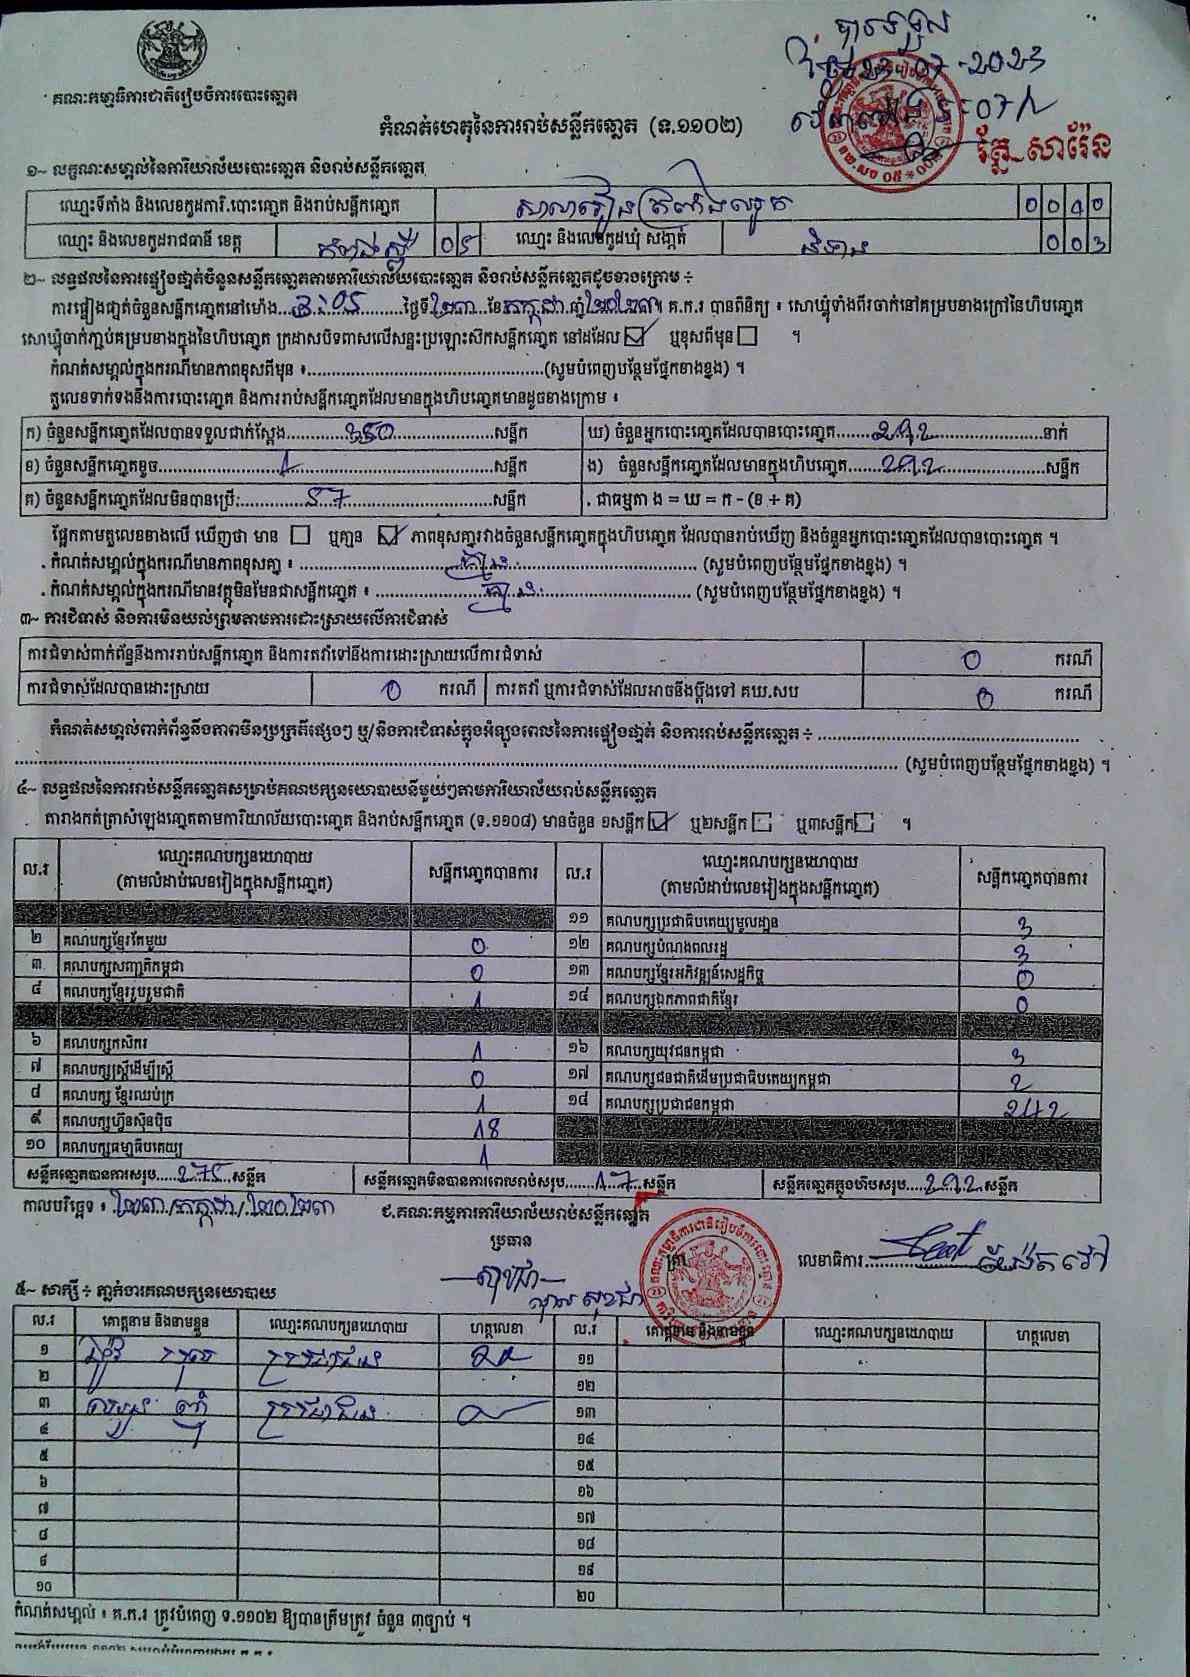 គណៈកម្មាធិការជាតិរៀបចំការបោះឆ្នោត
23-07-2023
កំណត់ហេតុនៃការរាប់សន្លឹកឆ្នោត (ទ.១១០២)
ត្រែ សារ៉ែន
១~ លក្ខណៈសម្គាល់នៃការិយាល័យបោះឆ្នោត និងរាប់សន្លឹកឆ្នោត
ឈ្មោះទីតាំង និងលេខកូដការិ.បោះឆ្នោត និងរាប់សន្លឹកឆ្នោត សាលារៀនត្រពាំងឈូក
ឈ្មោះ និងលេខកូដរាជធានី ខេត្ត កំពង់ស្ពឺ 05 ឈ្មោះ និងលេខកូដឃុំ សង្កាត់ 003
២~ លទ្ធផលនៃការផ្ទៀងផ្ទាត់ចំនួនសន្លឹកឆ្នោតតាមការិយាល័យបោះឆ្នោត និងរាប់សន្លឹកឆ្នោតដូចខាងក្រោម ÷
ការផ្ទៀងផ្ទាត់ចំនួនសន្លឹកឆ្នោតនៅម៉ោង 3:05 ថ្ងៃទី ២៣ ខែ កក្កដា ឆ្នាំ ២០២៣ គ.ក.រ បានពិនិត្យ ៖ សោឃ្លុំទាំងពីរចាក់នៅគម្របខាងក្រៅនៃហិបឆ្នោត
សោឃ្លុំចាក់ភ្ជាប់គម្របខាងក្នុងនៃហិបឆ្នោត ក្រដាសបិទពាសលើសន្ទះប្រឡោះស៊កសន្លឹកឆ្នោត នៅដដែល ☑ ឬខុសពីមុន ☐ ។
កំណត់សម្គាល់ក្នុងករណីមានភាពខុសពីមុន ៖ (សូមបំពេញបន្ថែមផ្នែកខាងខ្នង) ។
តួលេខទាក់ទងនឹងការបោះឆ្នោត និងការរាប់សន្លឹកឆ្នោតដែលមានក្នុងហិបឆ្នោតមានដូចខាងក្រោម ៖
ក) ចំនួនសន្លឹកឆ្នោតដែលបានទទួលជាក់ស្តែង 350 សន្លឹក ឃ) ចំនួនអ្នកបោះឆ្នោតដែលបានបោះឆ្នោត 292 នាក់
ខ) ចំនួនសន្លឹកឆ្នោតខូច 1 សន្លឹក ង) ចំនួនសន្លឹកឆ្នោតដែលមានក្នុងហិបឆ្នោត 292 សន្លឹក
គ) ចំនួនសន្លឹកឆ្នោតដែលមិនបានប្រើ: 57 សន្លឹក . ជាធម្មតា ង = ឃ = ក - (ខ + គ)
ផ្អែកតាមតួលេខខាងលើ ឃើញថា មាន ☐ ឬគ្មាន ☑ ភាពខុសគ្នារវាងចំនួនសន្លឹកឆ្នោតក្នុងហិបឆ្នោត ដែលបានរាប់ឃើញ និងចំនួនអ្នកបោះឆ្នោតដែលបានបោះឆ្នោត ។
. កំណត់សម្គាល់ក្នុងករណីមានភាពខុសគ្នា ៖ គ្មាន (សូមបំពេញបន្ថែមផ្នែកខាងខ្នង) ។
. កំណត់សម្គាល់ក្នុងករណីមានវត្ថុមិនមែនជាសន្លឹកឆ្នោត ៖ គ្មាន (សូមបំពេញបន្ថែមផ្នែកខាងខ្នង) ។
៣~ ការជំទាស់ និងការមិនយល់ព្រមតាមការដោះស្រាយលើការជំទាស់
ការជំទាស់ពាក់ព័ន្ធនឹងការរាប់សន្លឹកឆ្នោត និងការតវ៉ាទៅនឹងការដោះស្រាយលើការជំទាស់ 0 ករណី
ការជំទាស់ដែលបានដោះស្រាយ 0 ករណី ការតវ៉ា ឬការជំទាស់ដែលអាចនឹងប្តឹងទៅ គឃ.សប 0 ករណី
កំណត់សម្គាល់ពាក់ព័ន្ធនឹងភាពមិនប្រក្រតីផ្សេងៗ ឬ/និងការជំទាស់ក្នុងអំឡុងពេលនៃការផ្ទៀងផ្ទាត់ និងការរាប់សន្លឹកឆ្នោត ÷
(សូមបំពេញបន្ថែមផ្នែកខាងខ្នង) ។
៤~ លទ្ធផលនៃការរាប់សន្លឹកឆ្នោតសម្រាប់គណបក្សនយោបាយនីមួយៗតាមការិយាល័យរាប់សន្លឹកឆ្នោត
តារាងកត់ត្រាសំឡេងឆ្នោតតាមការិយាល័យបោះឆ្នោត និងរាប់សន្លឹកឆ្នោត (ទ.១១០៨) មានចំនួន ១សន្លឹក ☑ ឬ២សន្លឹក ☐ ឬ៣សន្លឹក ☐ ។
ល.រ ឈ្មោះគណបក្សនយោបាយ (តាមលំដាប់លេខរៀងក្នុងសន្លឹកឆ្នោត) សន្លឹកឆ្នោតបានការ ល.រ ឈ្មោះគណបក្សនយោបាយ (តាមលំដាប់លេខរៀងក្នុងសន្លឹកឆ្នោត) សន្លឹកឆ្នោតបានការ
១១ គណបក្សប្រជាធិបតេយ្យមូលដ្ឋាន 3
២ គណបក្សខ្មែរតែមួយ 0 ១២ គណបក្សបំណងពលរដ្ឋ 3
៣ គណបក្សសញ្ជាតិកម្ពុជា 0 ១៣ គណបក្សខ្មែរអភិវឌ្ឍន៍សេដ្ឋកិច្ច 0
៤ គណបក្សខ្មែររួបរួមជាតិ 1 ១៤ គណបក្សឯកភាពជាតិខ្មែរ 0
៦ គណបក្សកសិករ 1 ១៦ គណបក្សយុវជនកម្ពុជា 3
៧ គណបក្សស្ត្រីដើម្បីស្ត្រី 0 ១៧ គណបក្សជនជាតិដើមប្រជាធិបតេយ្យកម្ពុជា 2
៨ គណបក្ស ខ្មែរឈប់ក្រ 1 ១៨ គណបក្សប្រជាជនកម្ពុជា 242
៩ គណបក្សហ្វ៊ុនស៊ិនប៉ិច 18
១០ គណបក្សធម្មាធិបតេយ្យ 1
សន្លឹកឆ្នោតបានការសរុប 275 សន្លឹក សន្លឹកឆ្នោតមិនបានការពេលរាប់សរុប 17 សន្លឹក សន្លឹកឆ្នោតក្នុងហិបសរុប 292 សន្លឹក
កាលបរិច្ឆេទ ៖ ២៣/កក្កដា/២០២៣ ជ.គណៈកម្មការការិយាល័យរាប់សន្លឹកឆ្នោត
ប្រធាន ត្រា លេខាធិការ
៥~ សាក្សី ÷ ភ្នាក់ងារគណបក្សនយោបាយ
ល.រ គោត្តនាម និងនាមខ្លួន ឈ្មោះគណបក្សនយោបាយ ហត្ថលេខា ល.រ គោត្តនាម និងនាមខ្លួន ឈ្មោះគណបក្សនយោបាយ ហត្ថលេខា
១ ប្រជាជន ១១
២ ១២
៣ ប្រជាជន ១៣
៤ ១៤
៥ ១៥
៦ ១៦
៧ ១៧
៨ ១៨
៩ ១៩
១០ ២០
កំណត់សម្គាល់ ៖ គ.ក.រ ត្រូវបំពេញ ទ.១១០២ ឱ្យបានត្រឹមត្រូវ ចំនួន ៣ច្បាប់ ។